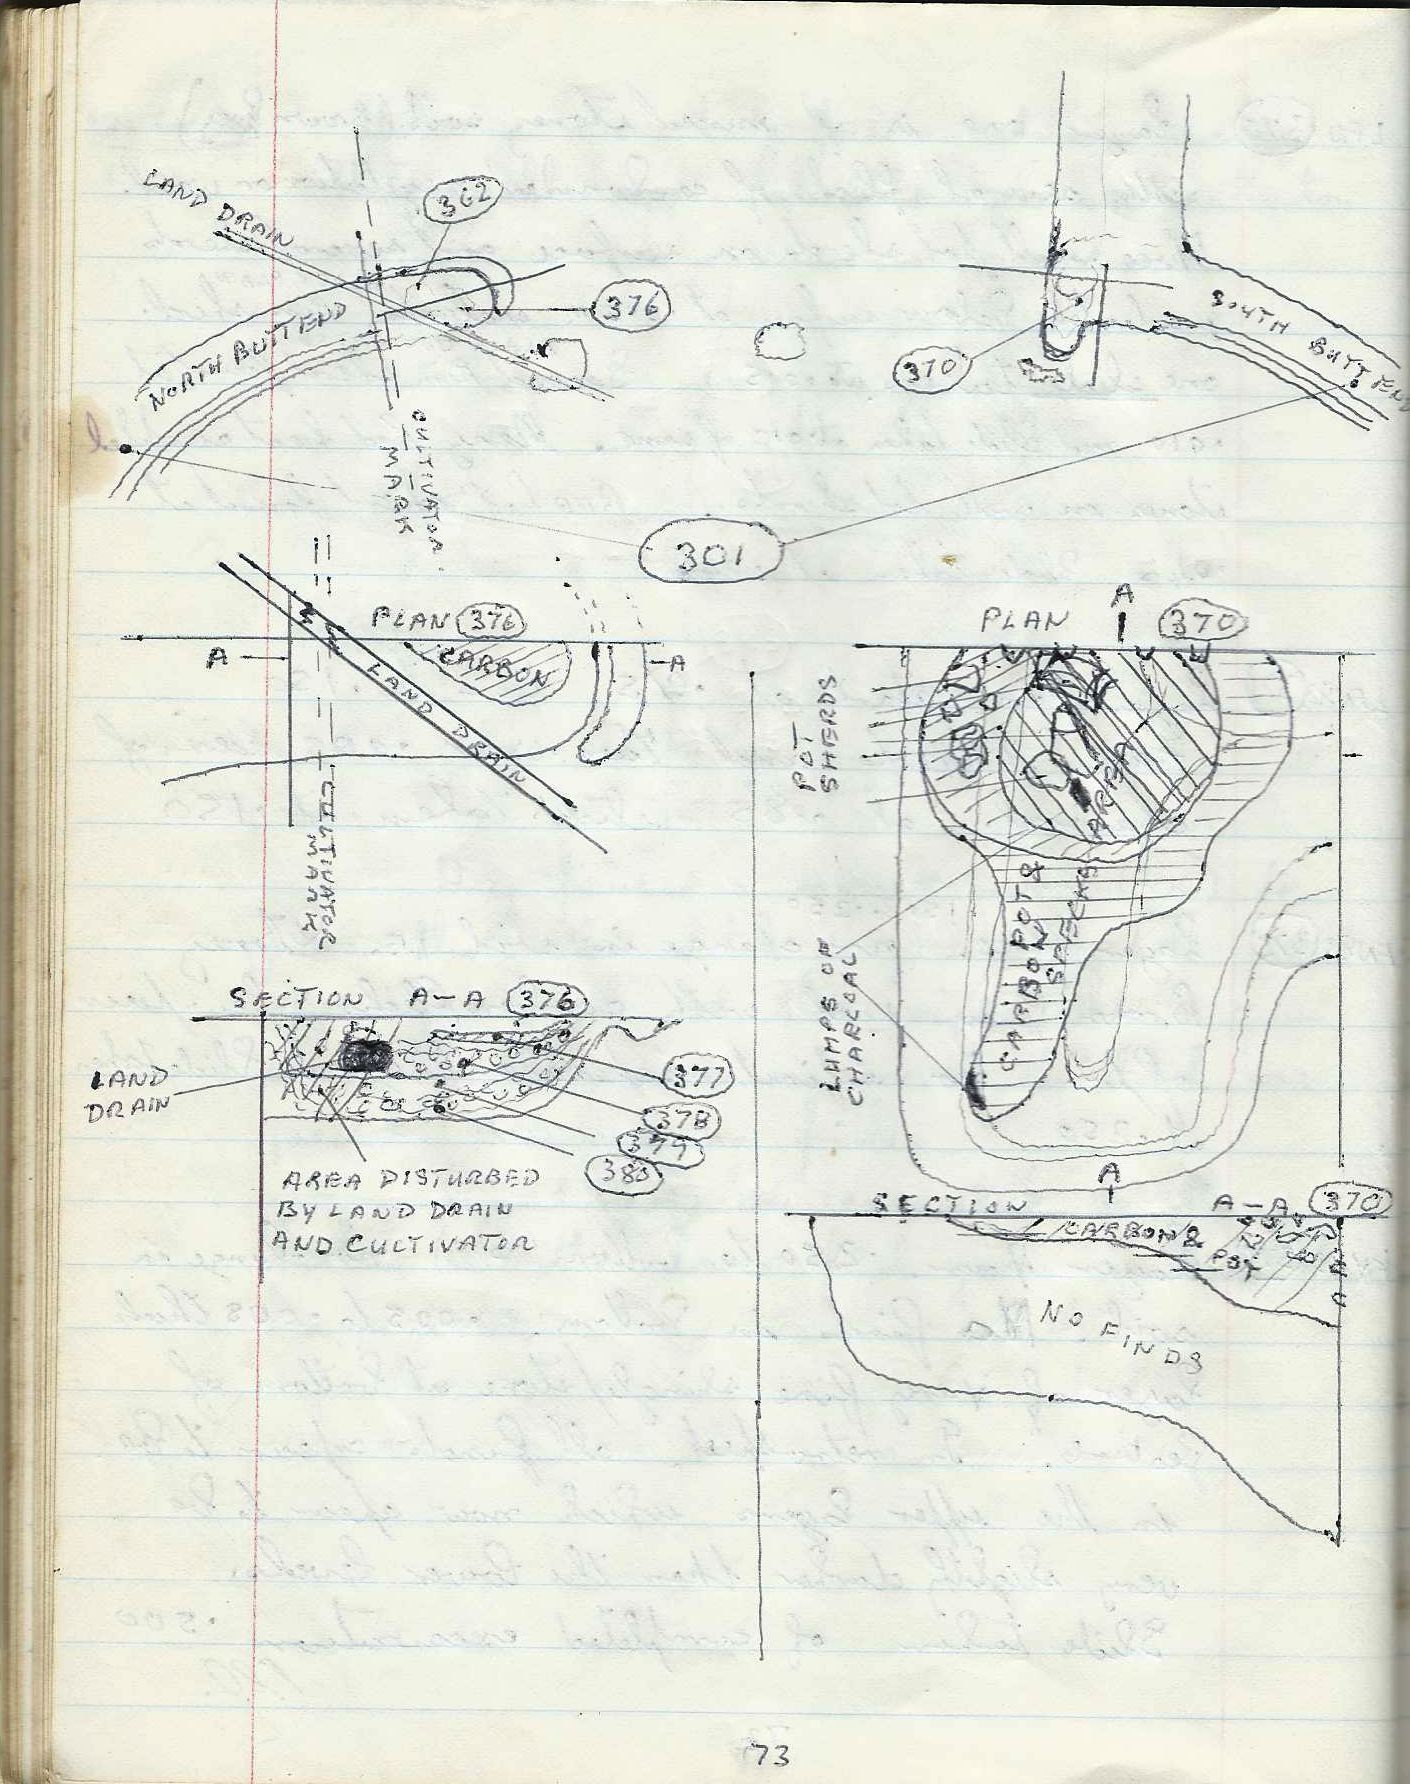 LAND DRAIN
362
376
NORTH BUTTEND
CULTIVATOR
MARK
370
SOUTH
BUTTEND
301
PLAN 376
CARBON
A
A
LAND DRAIN
CULTIVATOR
MARK
PLAN
A
370
POT
SHERDS
LUMPS OF
CHARCOAL
CARBON
POT &
SPECKS
A
SECTION A-A 376
LAND
DRAIN
377
378
379
380
AREA DISTURBED
BY LAND DRAIN
AND CULTIVATOR
SECTION A-A 370
CARBON &
POT
NO FINDS
73